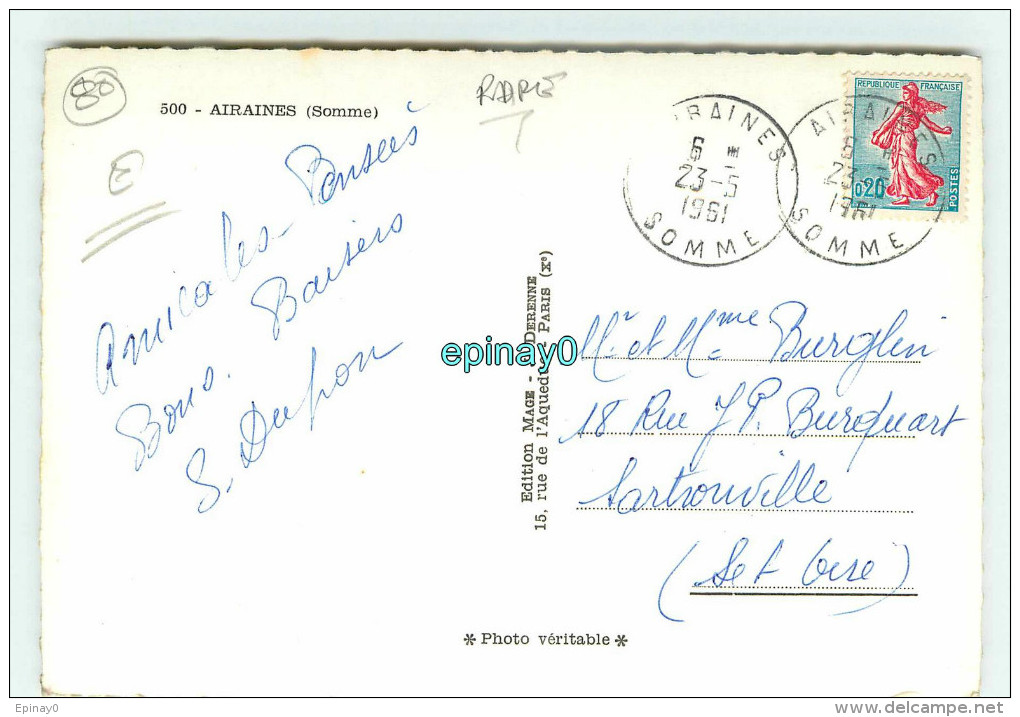 80
500 - AIRAINES (Somme)
RARE
E
Amicales Pensées
Bons Baisers
S. Dupon
AIRAINES
6 E
23-5
1961
SOMME
AIRAINES
6 E
23-5
1961
SOMME
REPUBLIQUE FRANÇAISE
0,20
POSTES
Edition MAGE - DERENNE
15, rue de l'Aqueduc - PARIS (Xe)
epinay0
Mr et Mme Burglin
18 Rue J P. Burquart
Sartrouville
(S et Oise)
* Photo véritable *
Epinay0
www.delcampe.net